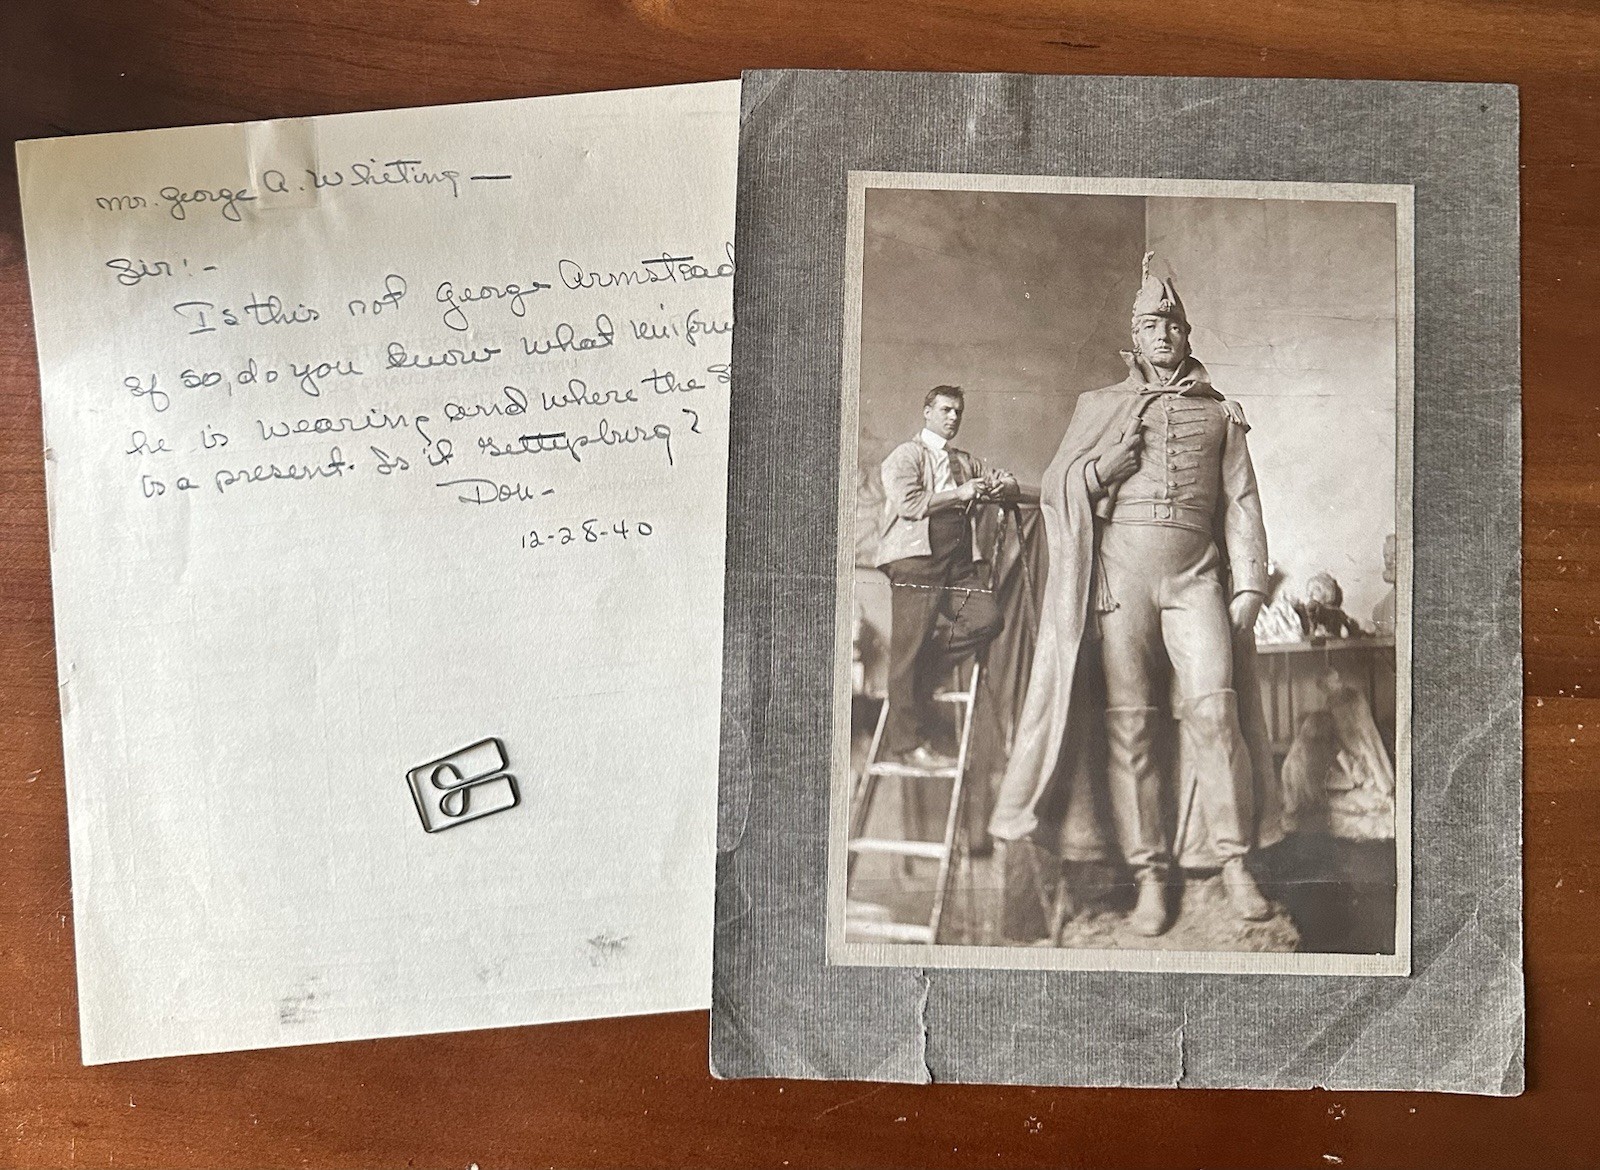 Mr. George A. Whiting —
Sir:-
Is this not George Armstead
If so, do you know what
he is wearing and where the
is a present. Is it Gettysburg?
Don-
12-28-40